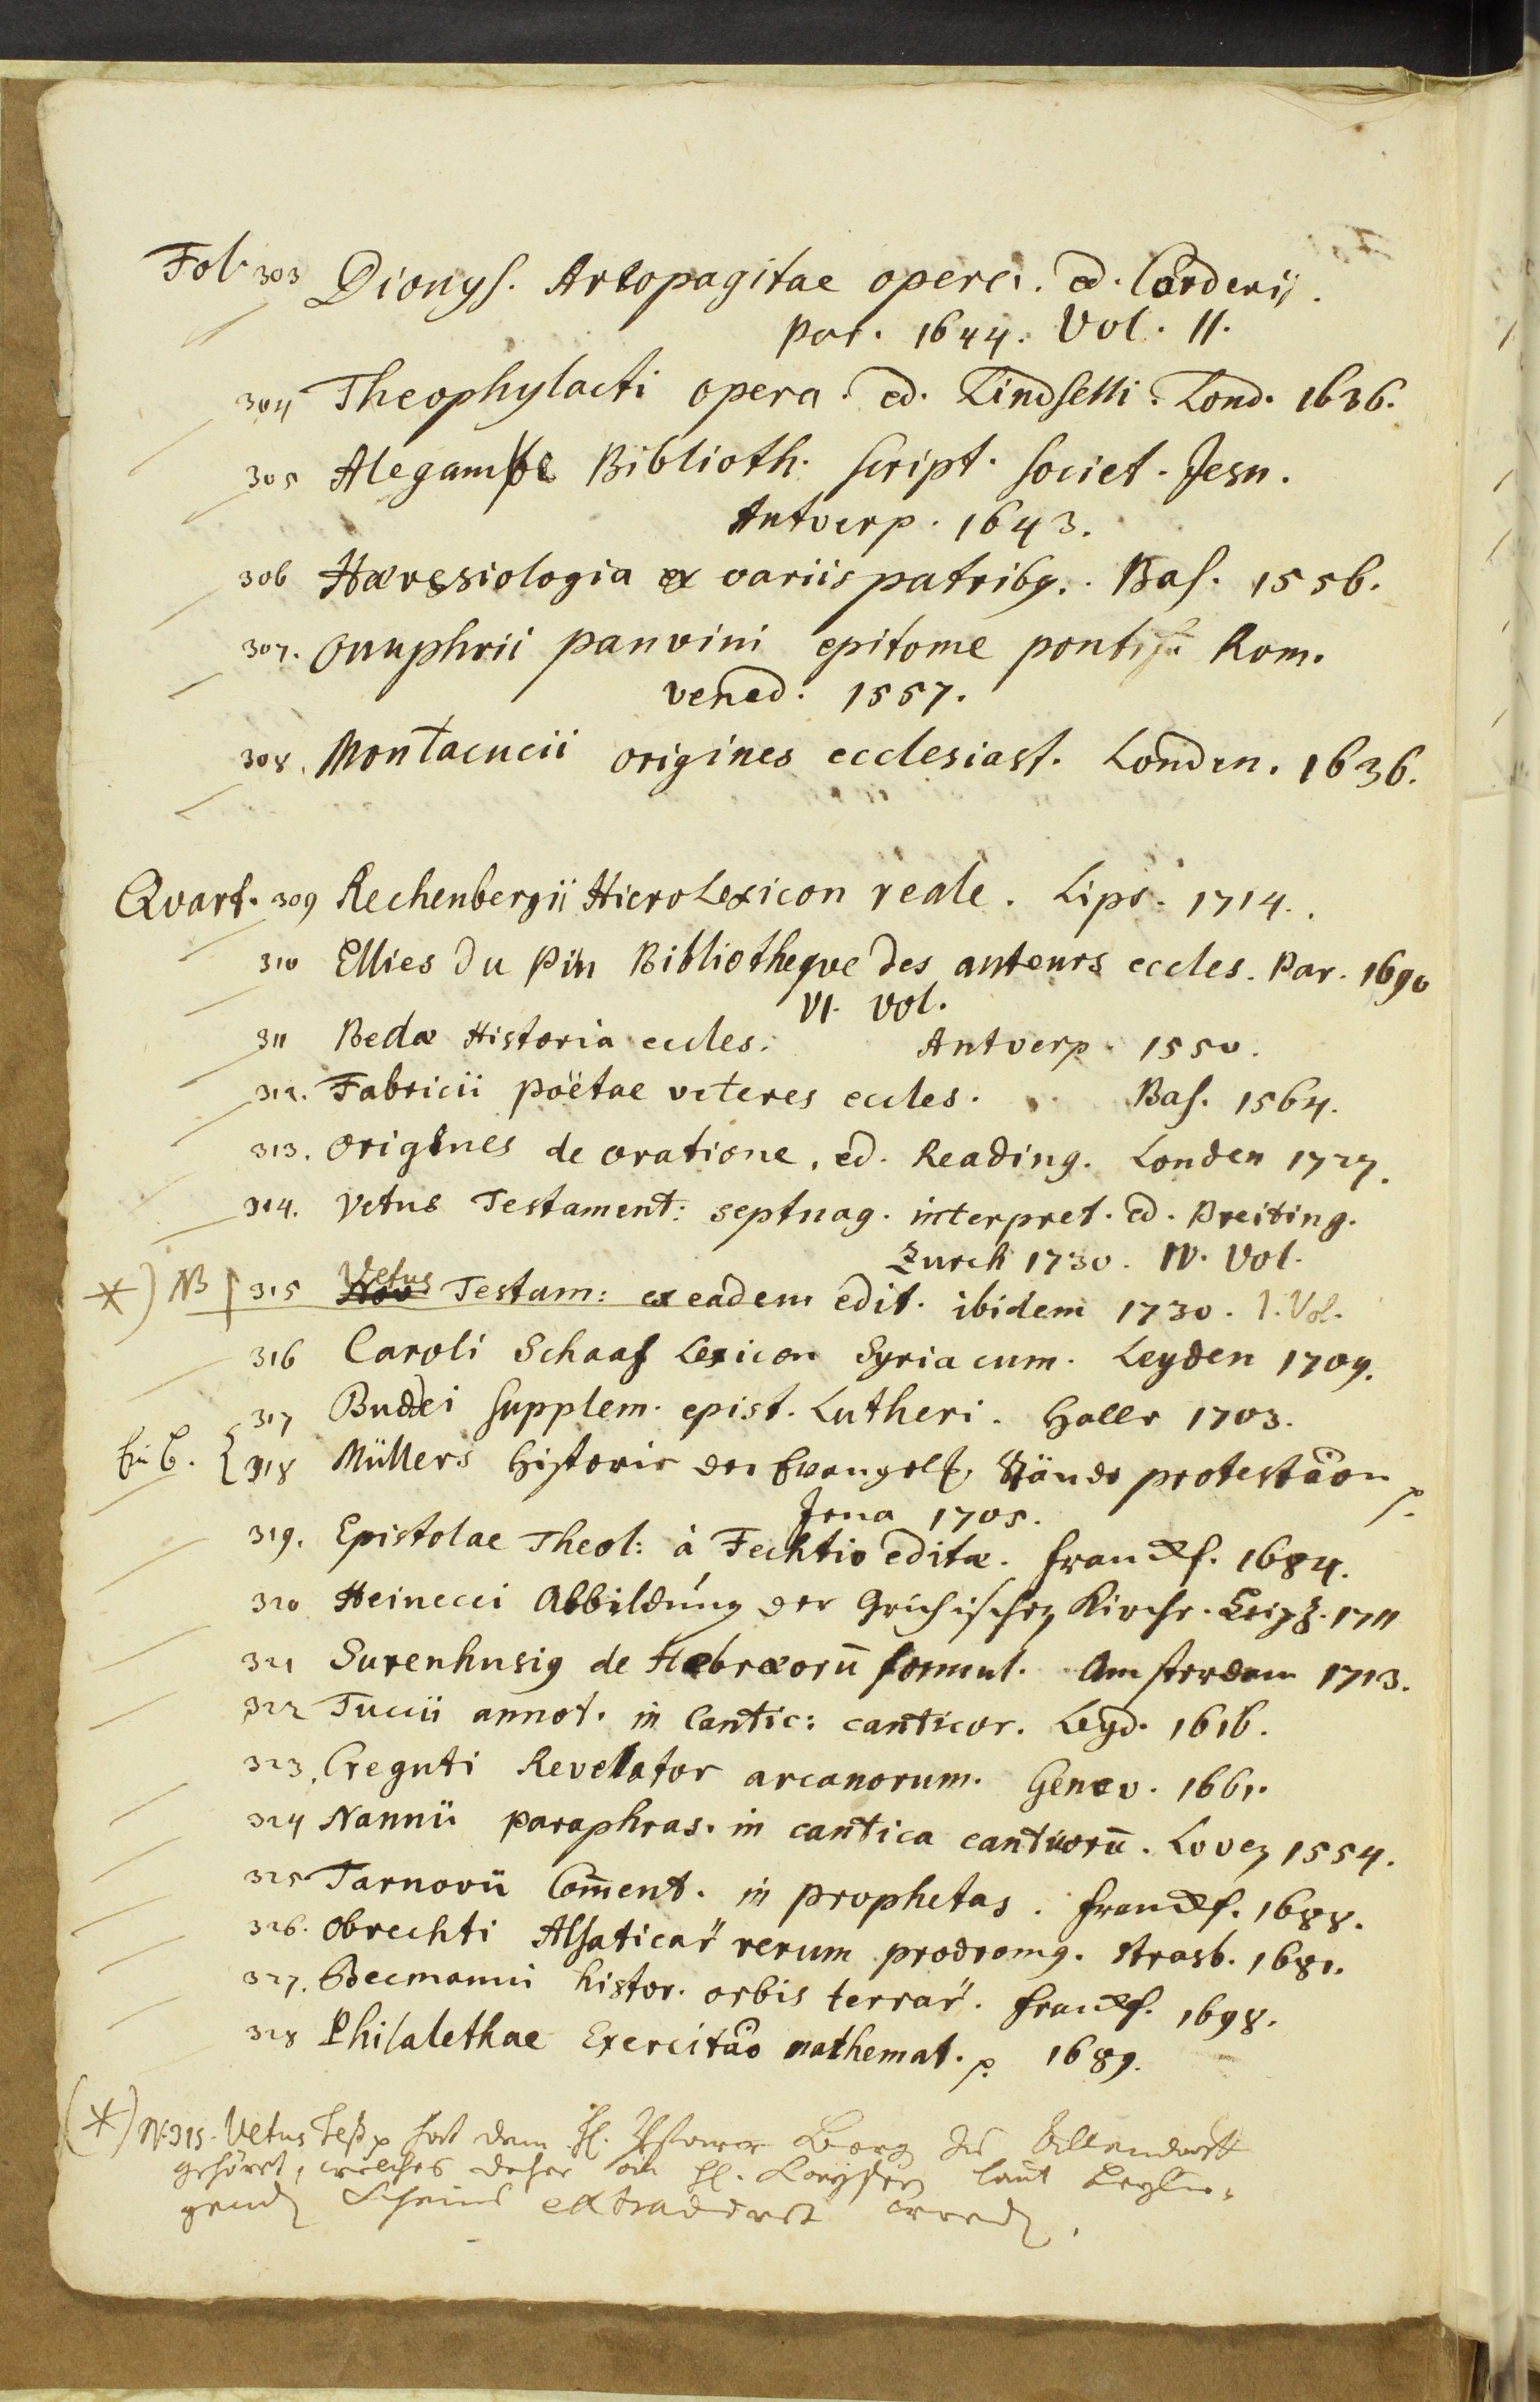 Fol. 303 Dionys. Areopagitae opera. ed. Corderij.
Par. 1644. Vol. II.
304 Theophylacti opera. ed. Lindselli. Lond. 1636.
305 Alegambe Biblioth. script. societ. Jesu.
Antverp. 1643.
306 Hæresiologia ex variis patribq. Bas. 1556.
307. Onuphrii panvini epitome pontif. Rom.
vened. 1557.
308. Montacucii origines ecclesiast. Londen. 1636.
Qvart. 309 Rechenbergii HieroLexicon reale. Lips. 1714.
310 Ellies du Pin Bibliotheqve des auteurs eccles. Par. 1690
VI. vol.
311 Bedæ Historia eccles. Antverp. 1550.
312. Fabricii poëtae veteres eccles. Bas. 1564.
313. Origenes de oratione, ed. Reading. Londen 1727.
314. Vetus Testament: septuag. interpret. ed. Breiting.
Zurch 1730. IV. Vol.
*) NB 315 Vetus Nov Testam: ex eadem edit. ibidem 1730. 1. Vol.
316 Caroli Schaaf Lexicon Syriacum. Leyden 1709.
317 Buddei supplem. epist. Lutheri. Halle 1703.
Ein B. 318 Müllers Historie der Evangelh. Stände protestaõn p.
Jena 1705.
319. Epistolae Theol: à Fechtio editæ. Franckf. 1684.
320 Heinecci Abbildung der Grichischen Kirche. Leipz. 1711
321 Surenhusig de Hebræorū formul. Amsterdam 1713.
322 Tuccii annot. in Cantic: canticor. Leyd. 1616.
323. Creguti Revelator arcanorum. Genev. 1661.
324 Nannii paraphras. in cantica canticorū. Loven 1554.
325 Tarnovii Com̄ent. in prophetas. Franckf. 1688.
326. Obrechti Alsaticar̄ rerum prodromq. Strasb. 1681.
327. Becmanni histor. orbis terrar̄. Franckf. 1698.
328 Philalethae Exercitaõ mathemat. p. 1689.
(*) N. 315. Vetus Test. p hat dem H. Pfarrer Berg zu Allendorff
gehöret, welches daher an H. laut beylie-
genden Scheins extradirt worden.